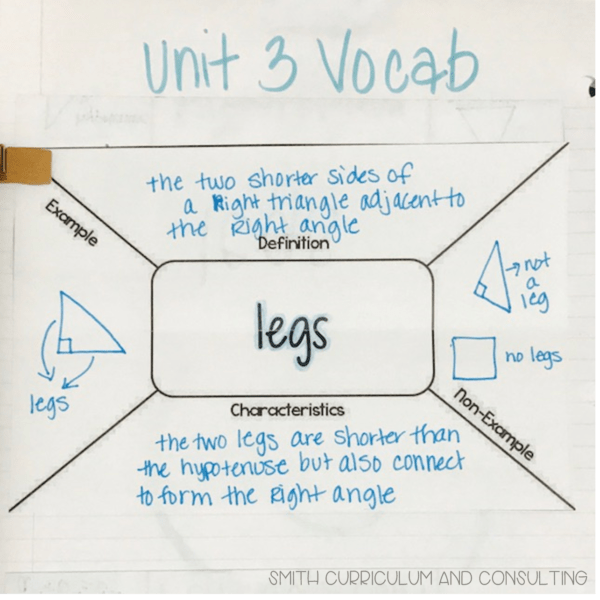 Unit 3 Vocab
the two shorter sides of
a Right triangle adjacent to
the Right angle
Definition
Example
legs
legs
→not
a
leg
no legs
Non-Example
Characteristics
the two legs are shorter than
the hypotenuse but also connect
to form the Right angle
SMITH CURRICULUM AND CONSULTING